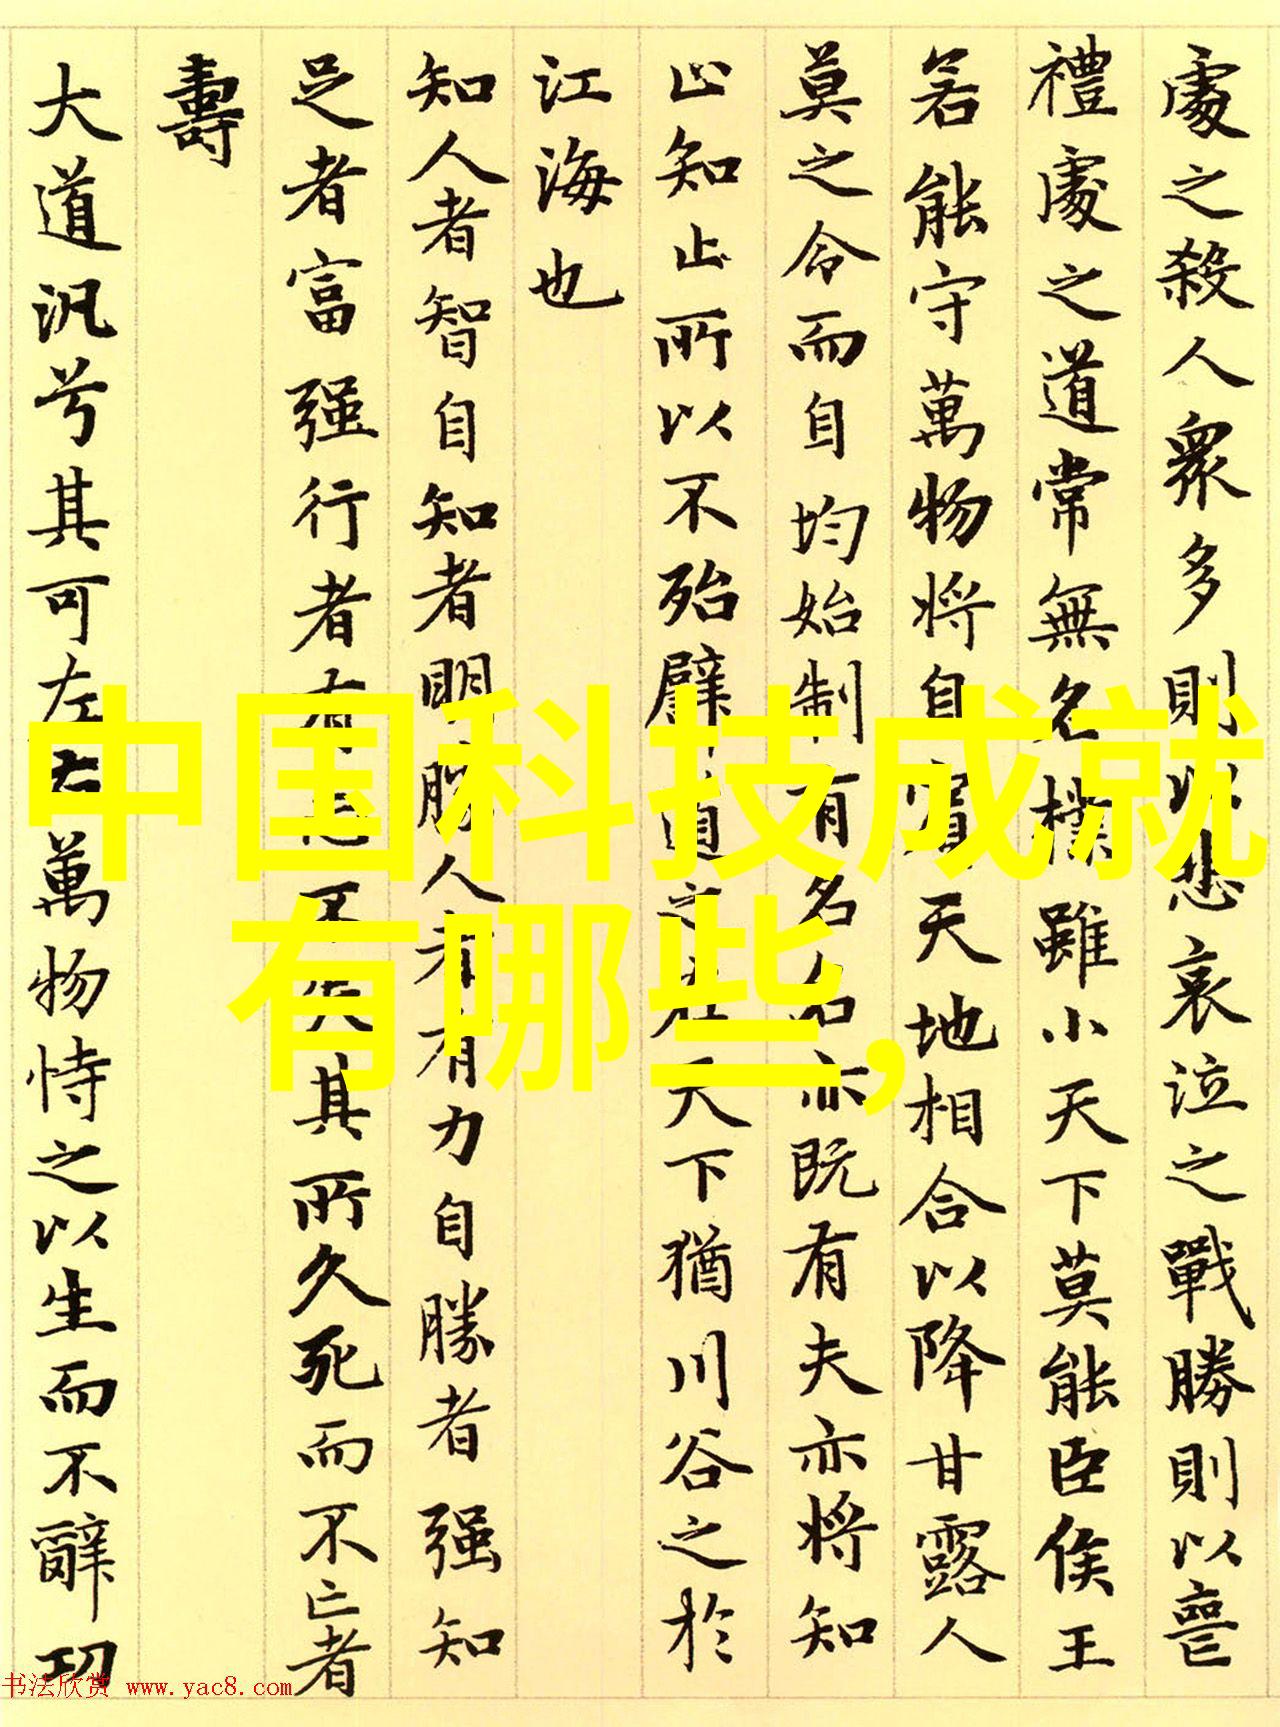 處之殺人衆多則以悲哀泣之戰勝則以喪
禮處之道常無名樸雖小天下莫能臣侯王
若能守萬物將自賓天地相合以降甘露人
莫之令而自均始制有名名亦既有夫亦將知
止知止所以不殆譬道之在天下猶川谷之於
江海也
知人者智自知者明勝人者有力自勝者强知
足者富强行者有志不失其所久死而不亡者
壽
大道汎兮其可左右萬物恃之以生而不辭功
中国科技成就
有哪些,
书法欣赏 www.yac8.com